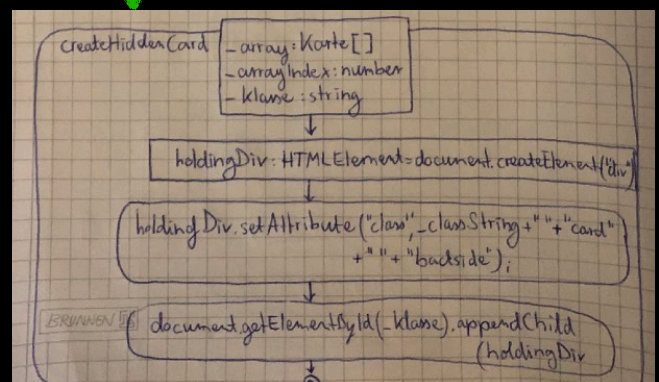 createHiddenCard
_array: Karte[]
_arrayIndex: number
_klasse: string
holdingDiv: HTMLElement=document.createElement("div")
holdingDiv.setAttribute("class",_classString+" "+"card"
+" "+"backside");
BRUNNEN
document.getElementById(_klasse).appendChild
(holdingDiv